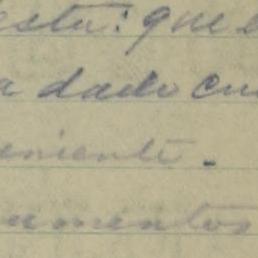 esta: que
a dado cu
eniente.
umentos